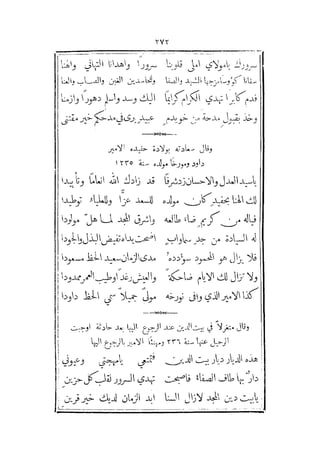 ٢٧٢
سرورك يا مولاي املى قلوبنا سرورًا واهدانا التهاني والهنا
سقانا كؤوسًا مزجها الشهد والصفا وللحاسدين الغبن والصاب والعنا
فدم كابرًا تهدي الكرام كرائمًا اليك وسد واسلم دهورًا وازمنا
وخذ بقبول مدحة من خويدم عبيد يرى في مدحكم خير مقتنى
وقال سعادته بولادة حفيده الامير
داود ومورخًا مولده سنة ١٢٣٥
يا سيد العدل والاحسان زد شرفًا قد زادك الله انعامًا وتأييدا
لك الهنا بحفيد كان مولده للسعد عزًّا وللعلياء توطيدا
فيا له من كريم ضاء طالعه واشرق المجد لما هلّ مولودا
له السيادة من جد سما وابٍ اضحت يداه تفيض البذل والجودا
فلا يزال هو المحمود سؤدده مدى الزمان سعيد الحظ مسعودا
ولا تزال لك الايام ضاحكةً والعيش رغدًا وطيب العمر ممدودا
كذا الامير الذي وافى نورخه مولىً جميلًا سني الحظ داودا
وقال متغزلًا في بيت الدين عند الرجوع اليها بعد حادثة اوجبت
الرحيل عنها سنة ٢٣٦ ومهنئًا الامير بالرجوع اليها
هذه الديار ديار بيت الدين فتمتعي يا مهجتي وعيوني
دارٌ بها طاف الصفاء فاصبحت تهدي السرور لقلب كل حزين
يا بيت دين المجد لا زال السنا ابد الزمان لديك خير قرين